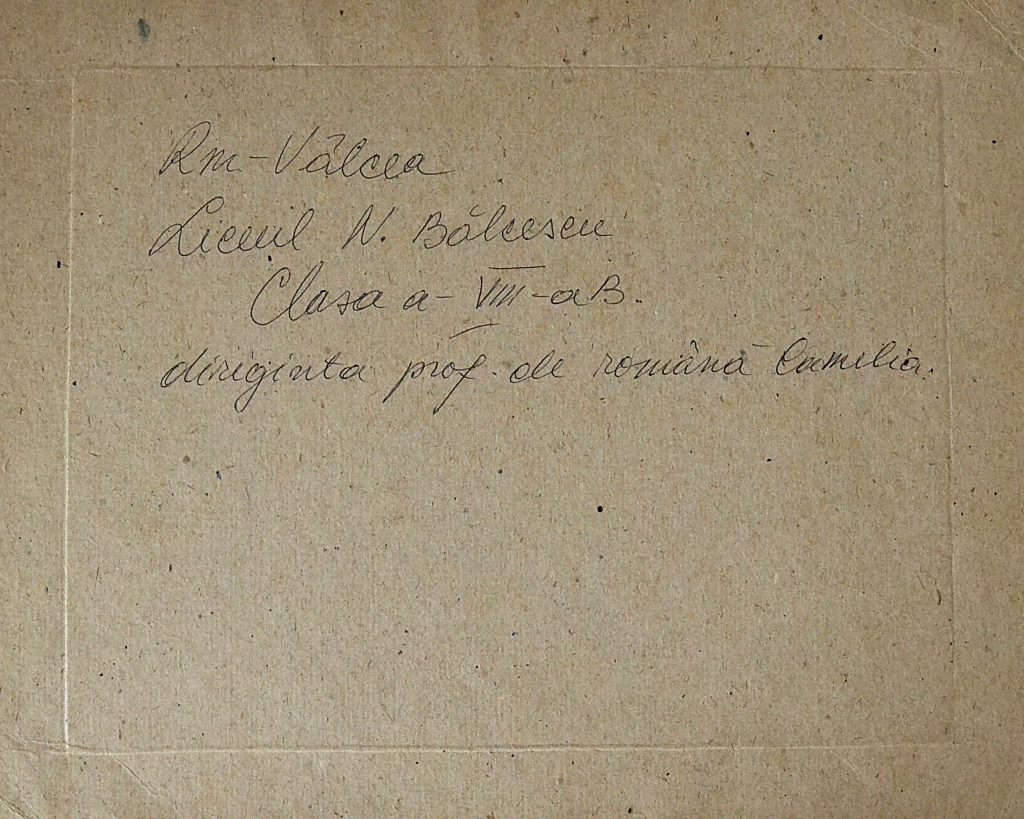 Rm-Vâlcea
Liceul N. Bălcescu
Clasa a- VIII-a B.
diriginta prof. de română Camelia.